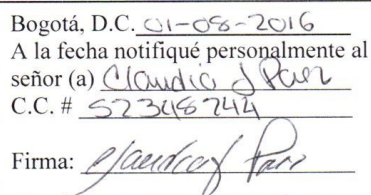 Bogotá, D.C. 01-08-2016
A la fecha notifiqué personalmente al
señor (a) Claudia J Paez
C.C. # 52348744
Firma: Claudia J Paez